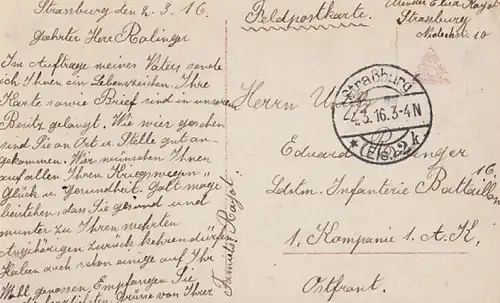 Strassburg den 2. 3. 16.
Geehrter Herr Rolinger
Im Auftrage meines Vaters sende
ich Ihnen ein Lebenszeichen. Ihre
Karte sowie Brief sind in unseren
Besitz gelangt. Wie wir gesehen
sind Sie an Ort u. Stelle gut an-
gekommen. Wir wünschen Ihnen
auf allen Ihren Kriegswegen
Glück u. Gesundheit. Gott möge
beistehen, das Sie gesund und
munter zu Ihren werthen
Angehörigen zurück kehren dürfen.
Haben auch schon einige auf Ihr
Wohl genossen. Empfangen Sie
die herzlichsten Grüsse von Ihrer
Familie Rayot
Feldpostkarte.
Absender Elisa Rayot
Strassburg
10
Herrn
Straßburg
2.3.16.3-4N
* (Els.) 2 k
Eduard
Ldstm. Infanterie Bataillon
16.
1. Kompanie 1. A. K.
Ostfront.